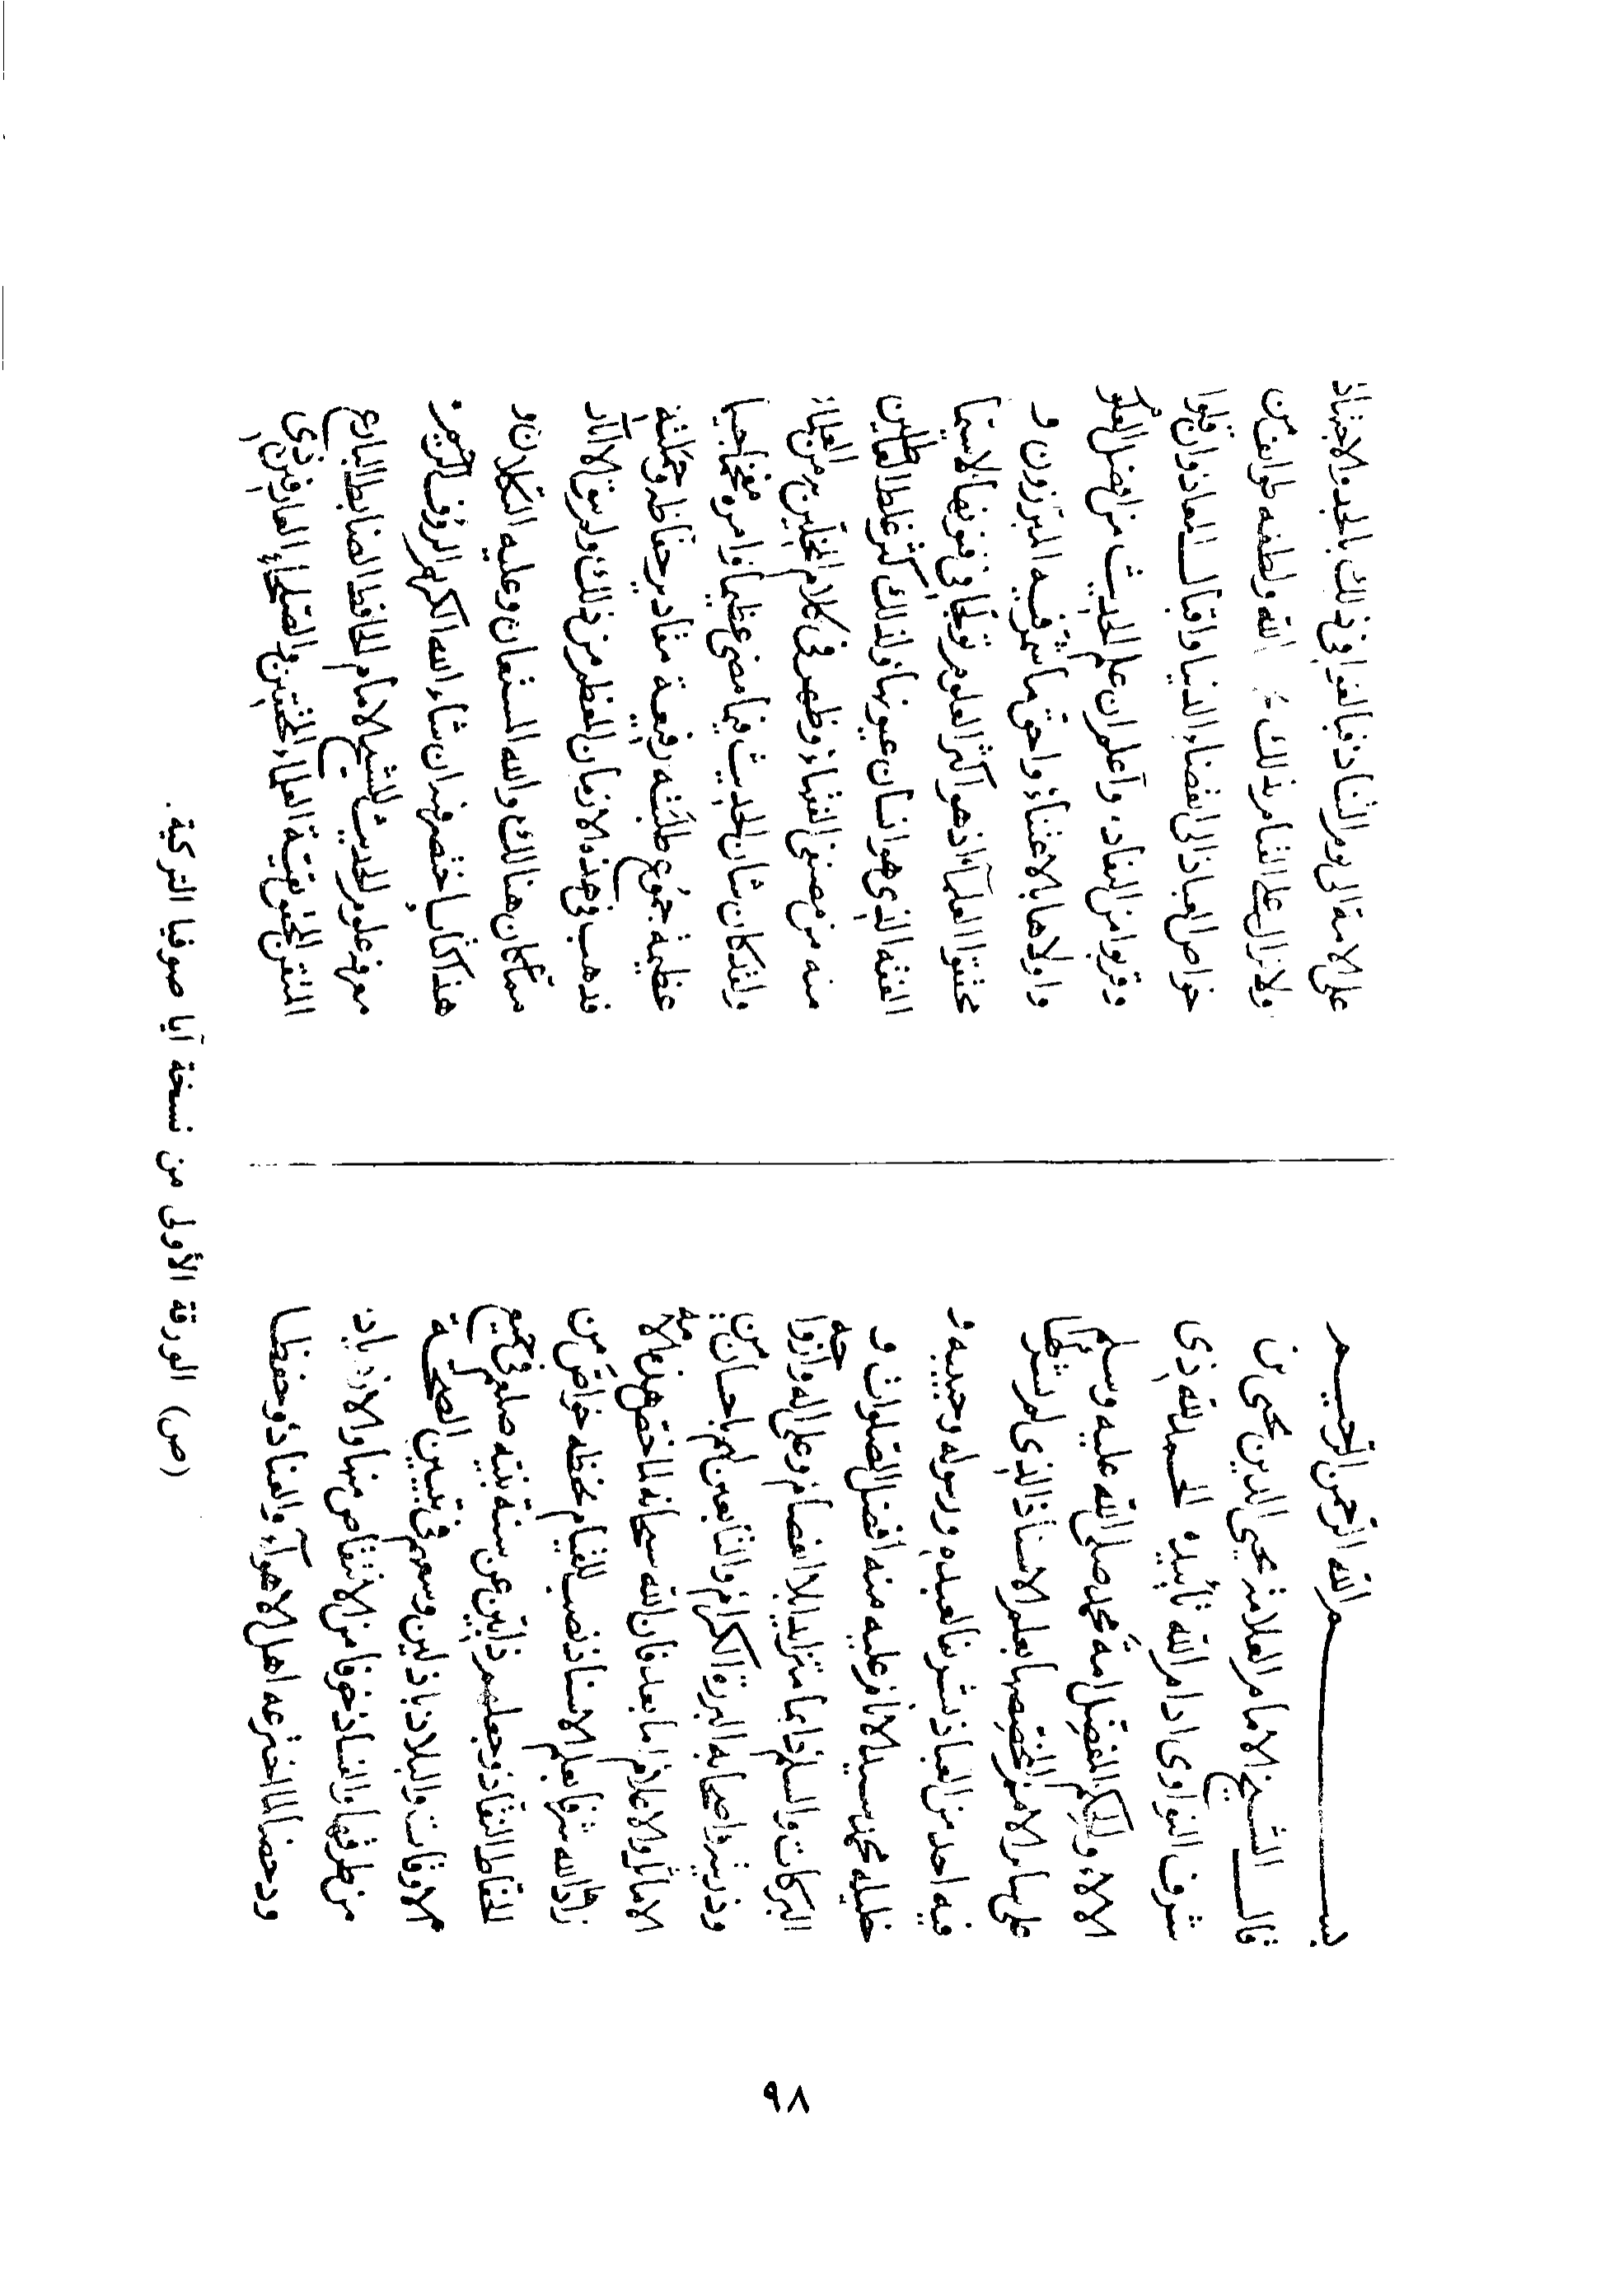 بسم الله الرحمن الرحيم
قال الشيخ الامام العلامة محيي الدين يحيى بن
شرف النواوي ادام الله تأييده الحمد لله ذى
الالاء والحكم المفضل امة محمد صلى الله عليه وسلم
على سائر الامم المخصصها بعلم الاسناذ الذى لم يشركها
فيه احد من العباذ نشرفا لعبده ورسوله وحبيبه و
خليله محمد سيد الانام عليه منه افضل الصلوات و
البركات والسلم دايما متزايدا بلا انفصام وعلى اله وازواجه
وذريته واصحابه البررة الكرام والتابعين لهم باحسان من
الاماثل والاعلام اما بعد فان الله سبحانه لما اختص هذه الامة
زادها الله شرفا بعلم الاسناذ نصب للقيام بحفظه خواص من
الحفاظ النقاذ وجعلهم ذابين عن سنة نبيه صلعم في جميع
الاوقات والبلاد باذلين وسعهم في تبيين الصحة
من طرقها والفساذ خوفا من الانتقاص منها والازدياد
ودحضا لما اخترعه اهل الاهواء والعناذ وحفظا
على الامة الى يوم التناد فبالغوا في ذلك بالجد والاجتهاد
ولا يزال على القيام بذلك الله ولطفه طوايف من
خواص العباذ الى انقضاء الدنيا واقبال المعاد وان قلوا
وقربوا من النفاد، واعلم ان علم الحديث من افضل العلوم
واولاها بالاعتناء واحق ما شمر فيه المبرزون و
محققوا العلماء اذ هو اكثر العلوم تولجا في فنونها لا سيما
الفقه الذى هو انسان عيونها ولذلك كثر غلط العاطلين
منه من مصنفي الفقهاء وظهر في كلام المخلين به من العلماء
ولقد كان شان الحديث فيما مضى عظيما وامره مفخما جسيما
عظيمة جموع طلبته رفيعة مقادير حفاظه وحملته
فذهب في هذه الازمان المعظم من ذلك ولم يبق الا آثار
مما كان هنالك والله المستعان وعليه التكلان و
هذا كتاب اختصرفه ان شاء الله الكريم الرؤف الرحيم
معرفة علوم الحديث للشيخ الامام الحافظ الضابط البارع
المتقن المحقق بقية العلماء المحققين والصلحاء العارفين ذي
(ص) الورقة الأولى من نسخة آيا صوفيا التركية.
٩٨